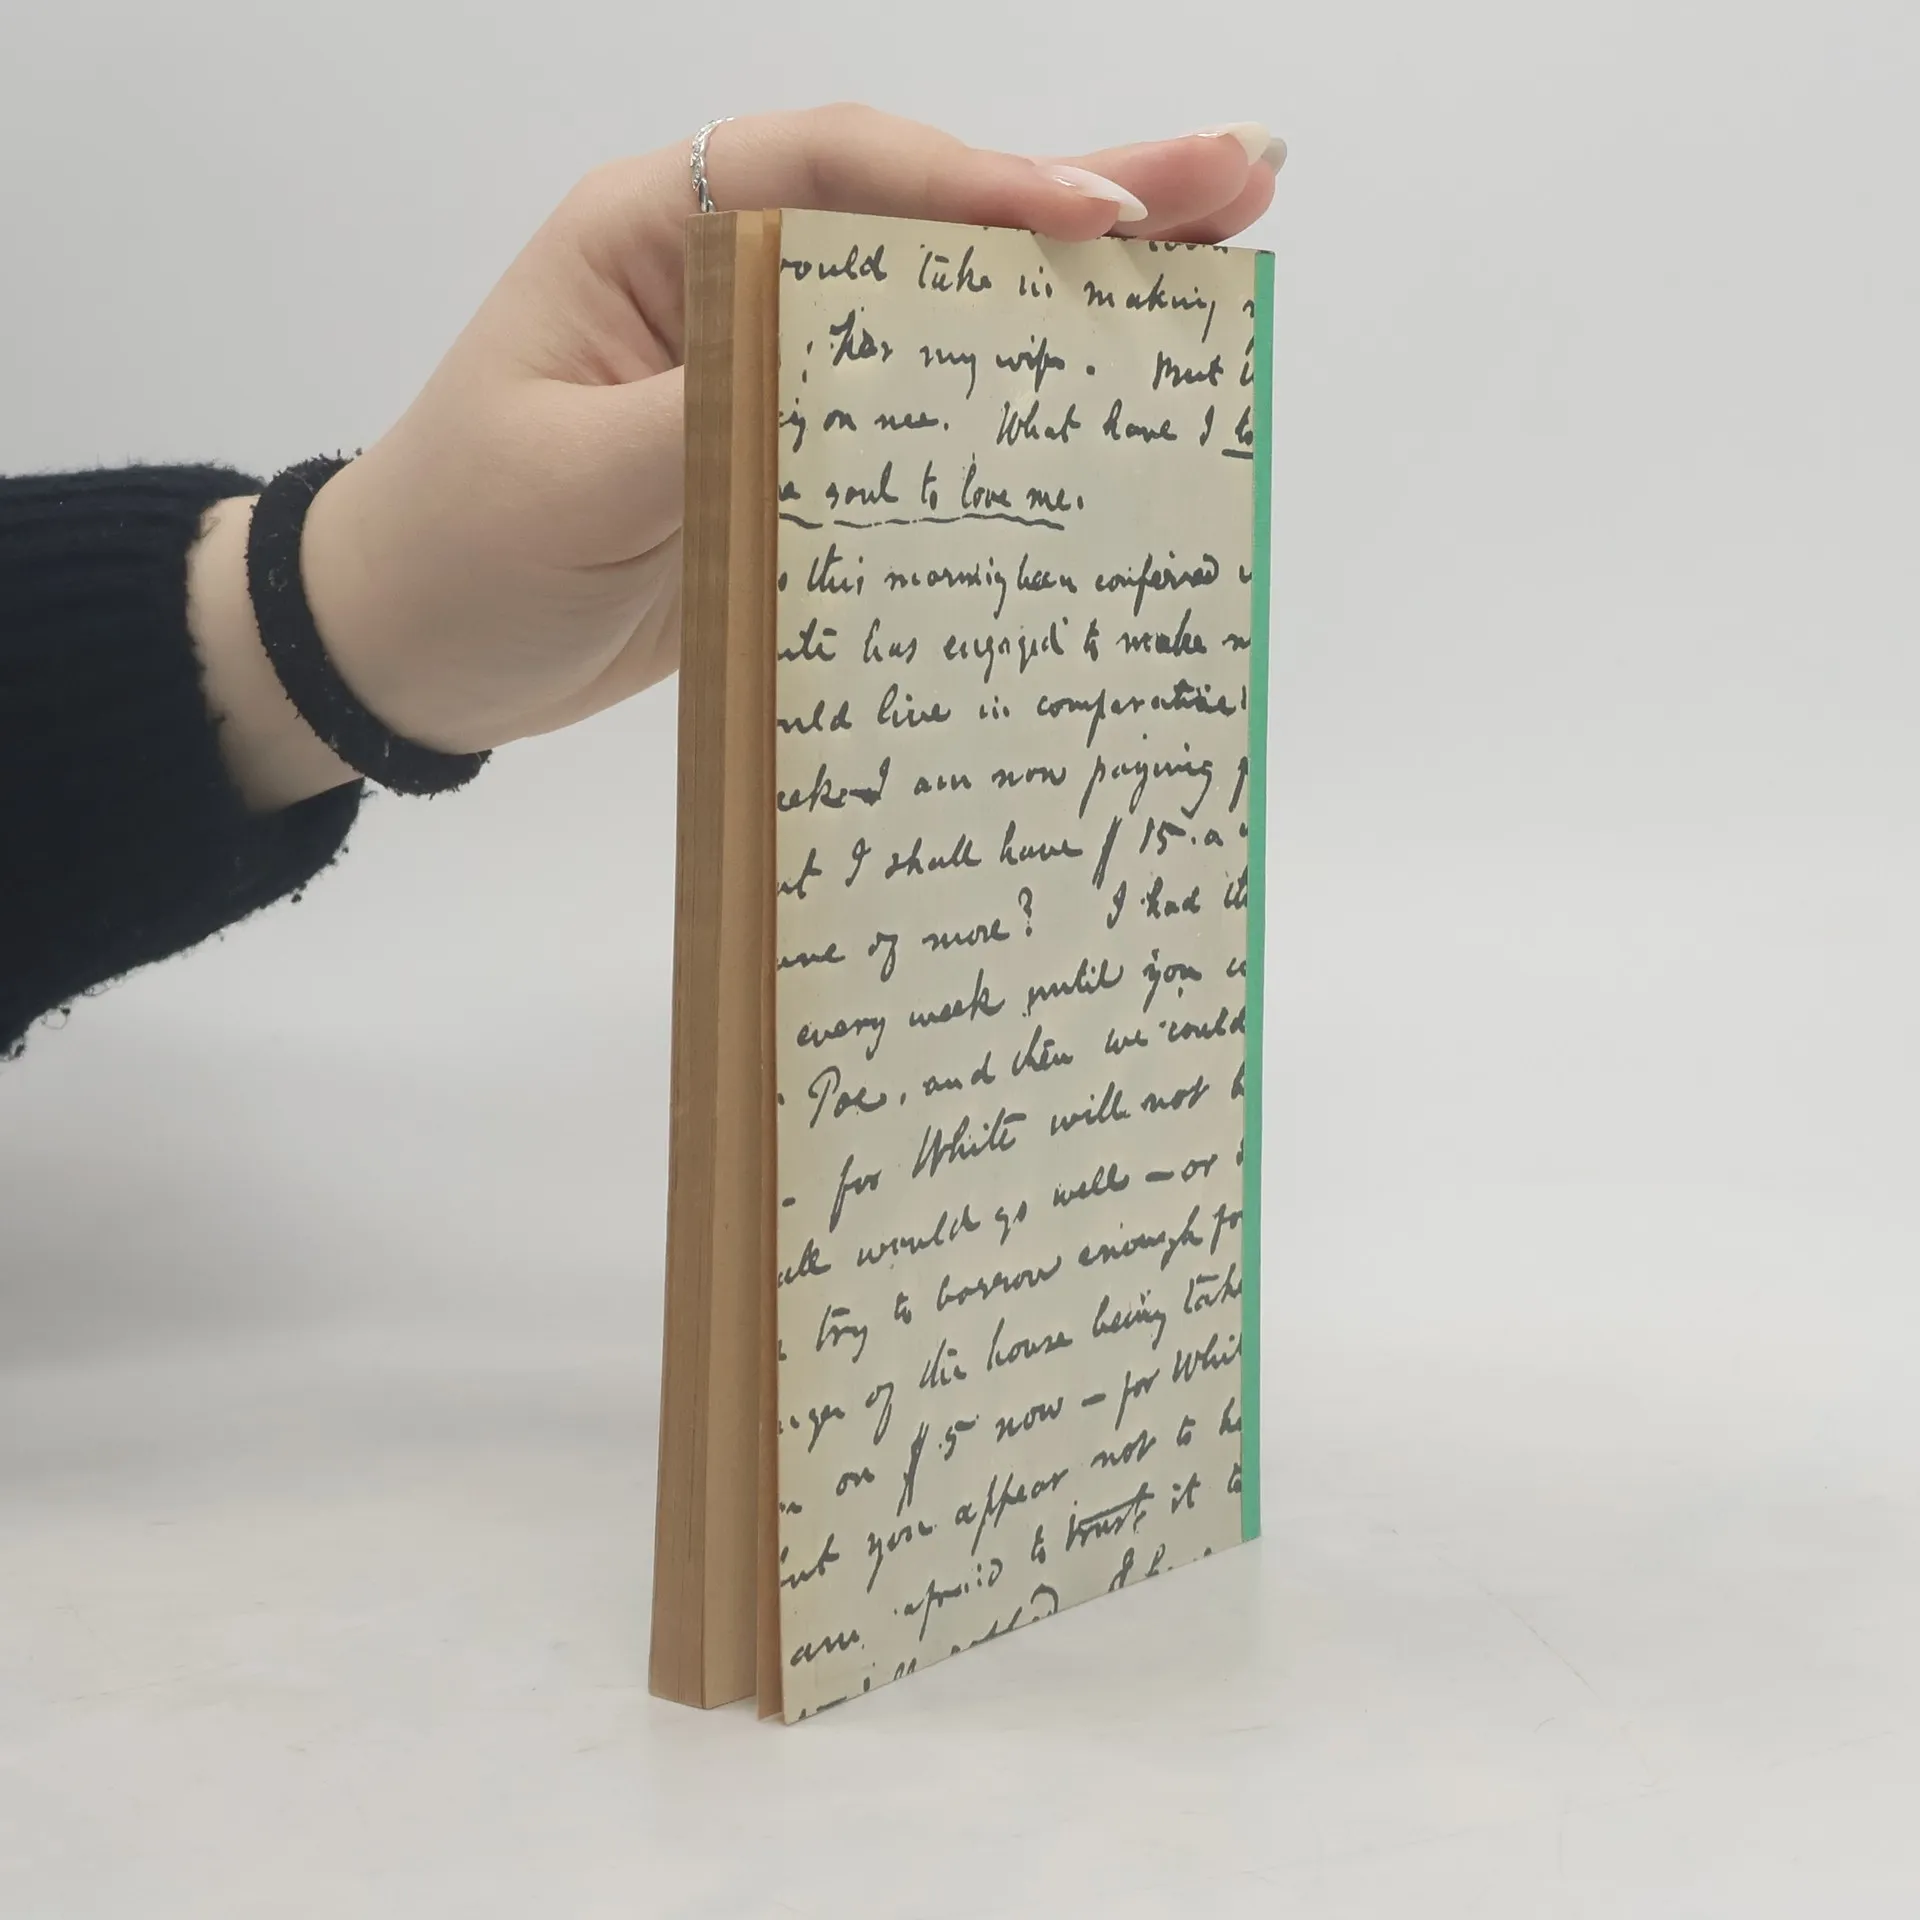 would take in making
my wife. But
on me. What have I to
soul to love me.
this morning been conferred
has engaged to make
uld live in comparative
eek I am now paying
ut I shall have $ 15. a
of more? I had
every week until you
Poe, and then we could
- for White will not b
all would go well — or
try to borrow enough fo
of the house being take
on $ 5 now — for Whit
but you appear not to ha
am afraid to trust it to